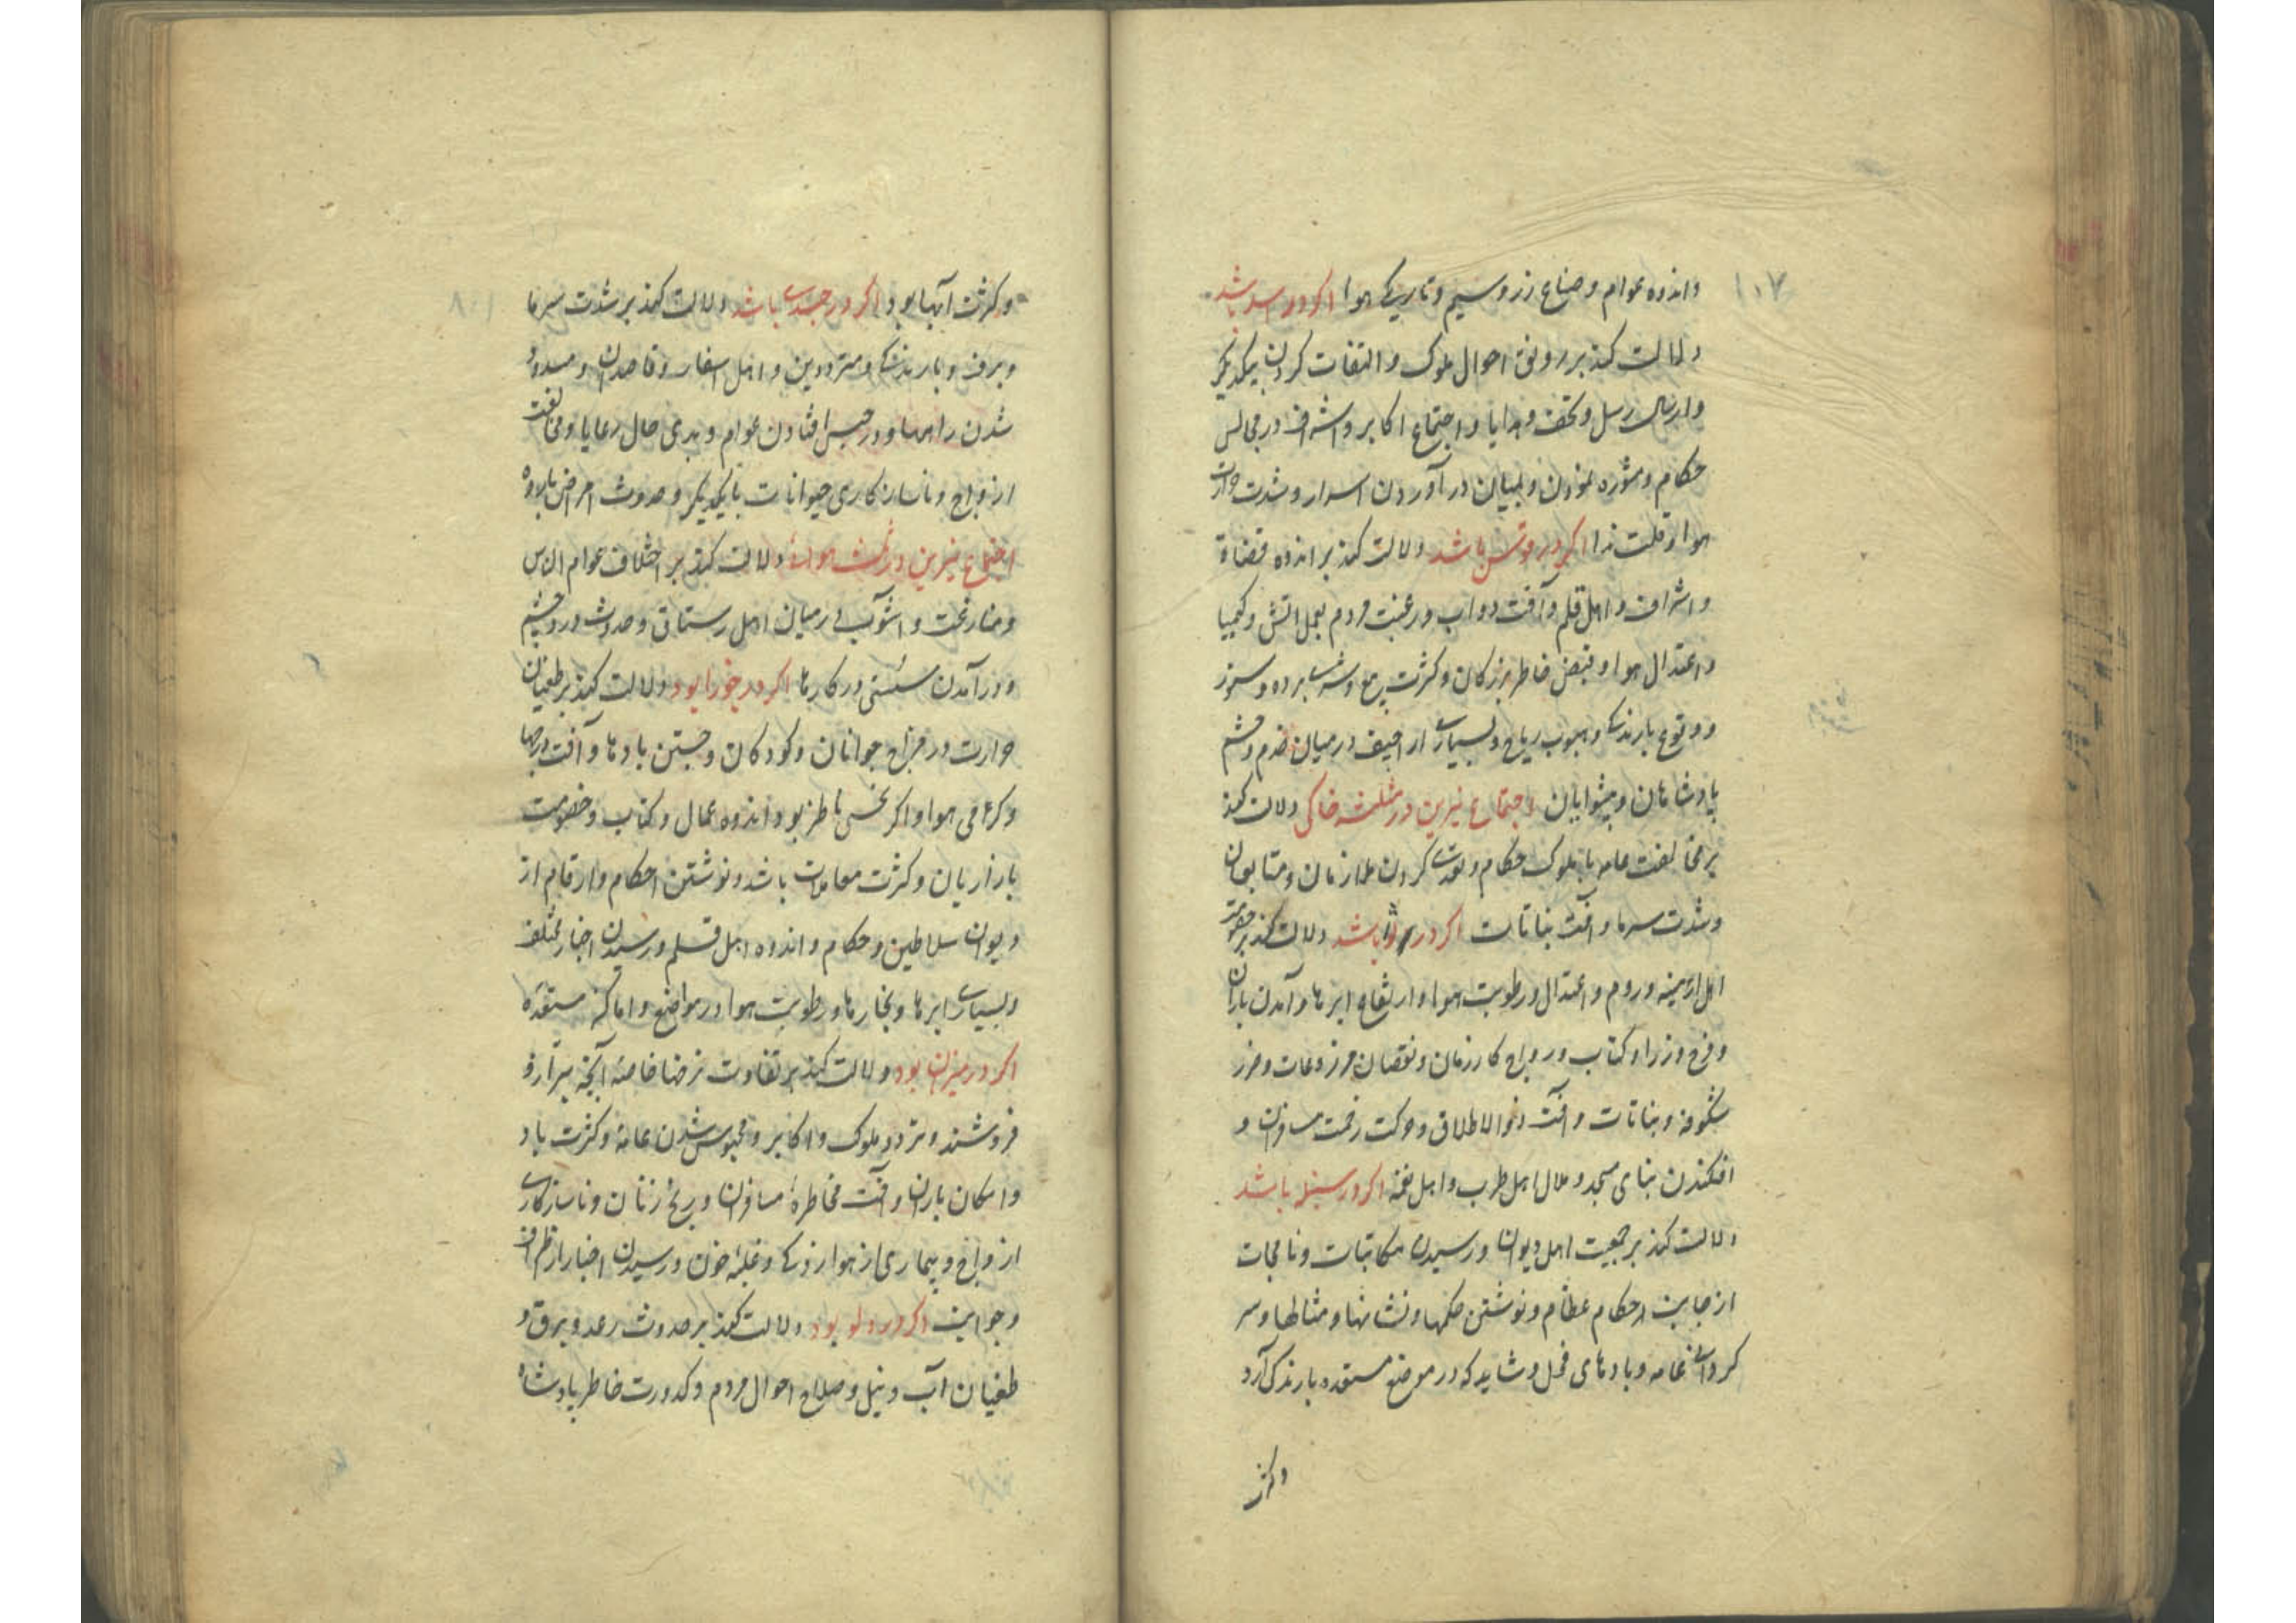 ۱۰۷
واندوه عوام و ضیاع زر و سیم و تاریکی هوا اکر در اسد باشد
دلالت کند بر رونق احوال ملوک والتفات کردن بیکدیکر
وارسال رسل و تحف و هدایا و اجتماع اکابر و اشراف در مجالس
حکام و مشوره نمودن و بمیان در آوردن اسرار و شدت حرارت
هوا و قلت ندا اکر در قوس باشد دلالت کند بر اندوه قضاة
و اشراف و اهل قلم و آفت دواب و رغبت مردم بعمل اتش و کیمیا
و اعتدال هوا و قبض خاطر بزرکان و کثرت بیع و شری برده و ستور
و وقوع بارندکی و هبوب ریاح و بسیاری اراجیف در میان خدم و حشم
پادشاهان و پیشوایان اجتماع نیرین در مثلثه خاکی دلالت کند
بر مخالفت عامه با ملوک حکام و تعدی کردن ملازمان و متابعان
و شدت سرما و آفت نباتات اکر در ثور باشد دلالت کند بر خصومت
اهل ارمینیه و روم و اعتدال و رطوبت هوا و ارتفاع ابرها و آمدن باران
و فرح وزرا و کتاب و رواج کار زمان و نقصان مزروعات و ضرر
شکوفه و نباتات و آفت ذوالاظلاف و حرکت زحمت مسافران و
افکندن بنای مسجد و ملال اهل طرب و اهل نغمه اکر در سنبله باشد
دلالت کند بر جمعیت اهل دیوان و رسیدن مکاتبات و نامجات
از جانب احکام عظام و نوشتن حکمها و نشانها و مثالها و سر
کردانی عامه و بادهای فحل و شاید که در موضع مستعده بارندکی آرد
وکثرت
۱۰۸
و کثرت آبها بود اکر در جدی باشد دلالت کند بر شدت سرما
و برف و بارندکی و مترددین و اهل اسفار و قاصدان و مسدود
شدن راهها و در حبس افتادن عوام و بدی حال رعایا و مخالفت
ازواج و ناسازکاری حیوانات با یکدیکر و حدوث امراض بارده
اجتماع نیرین در مثلثه هوائی دلالت کند بر اختلاف عوام الناس
و منازعت و آشوب در میان اهل رستاق و حدوث درد چشم
و در آمدن سستی در کارها اکر در جوزا بود دلالت کند بر طغیان
حرارت در مزاج جوانان و کودکان و جستن بادها و آفت درختها
و کرمی هوا و اکر نحسی ناظر بود اندوه عمال و کتاب و خصومت
بازاریان و کثرت معاملات باشد و نوشتن احکام و ارقام از
دیوان سلاطین و حکام و اندوه اهل قلم و رسیدن اخبار مختلف
و بسیاری ابرها و بخارها و رطوبت هوا در مواضع و اماکن مستعده
اکر در میزان بود دلالت کند بر تفاوت نرخها خاصه آنچه بترازو
فروشند و تردد ملوک و اکابر و محبوس شدن عامه و کثرت باد
و امکان باران و آفت مخاطره مسافران و رنج زنان و ناسازکاری
ازواج و بیماری از هوا زدکی و غلبه خون و رسیدن اخبار از اطراف
و جوانب اکر در دلو بود دلالت کند بر حدوث رعد و برق و
طغیان آب و نیل و صلاح احوال مردم و کدورت خاطر پادشاه